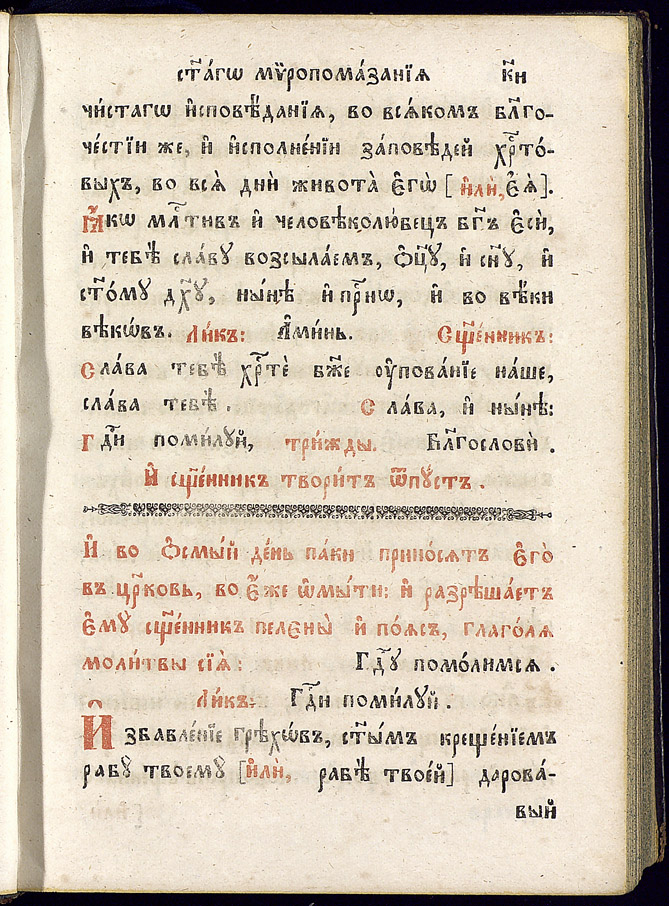 ст҃а́гѡ мѵ̈ропома́занїѧ к҃и
чи́стагѡ и҆сповѣ́данїѧ, во всѧ́комъ бл҃го-
че́стїи же, и҆ и҆сполне́нїи за́повѣдей хрⷭ҇то́-
выхъ, во всѧ̀ дни̑ живота̀ є҆гѡ̀ [и҆лѝ, є҆ѧ̀].
Ꙗ҆́кѡ млⷭ҇тивъ и҆ человѣколю́бецъ бг҃ъ є҆сѝ,
и҆ тебѣ̀ сла́вꙋ возсыла́емъ, ѻ҆ц҃ꙋ̀, и҆ сн҃ꙋ, и҆
ст҃о́мꙋ дх҃ꙋ, ны́нѣ и҆ при́снѡ, и҆ во вѣ́ки
вѣкѡ́въ. Ли́къ: А҆ми́нь. Сщ҃е́нникъ:
Сла́ва тебѣ̀ хрⷭ҇тѐ бж҃е ᲂу҆пова́нїе на́ше,
сла́ва тебѣ̀. Сла́ва, и҆ ны́нѣ:
Гдⷭ҇и поми́лꙋй, три́жды. Бл҃гословѝ.
И҆ сщ҃е́нникъ твори́тъ ѿпꙋ́стъ.
И҆ во ѻ҆смы́й де́нь па́ки прино́сѧтъ є҆го̀
въ цр҃ковь, во є҆́же ѡ҆мы́ти: и҆ разрѣша́етъ
є҆мꙋ̀ сщ҃е́нникъ пелєны̀ и҆ по́ѧсъ, глаго́лѧ
моли́твы сїѧ̑: Гдⷭ҇ꙋ помо́лимсѧ.
Ли́къ: Гдⷭ҇и поми́лꙋй.
И҆збавле́нїе грѣхѡ́въ, ст҃ы́мъ креще́нїемъ
рабꙋ̀ твоемꙋ̀ [и҆лѝ, рабѣ̀ твое́й] дарова́-
вый